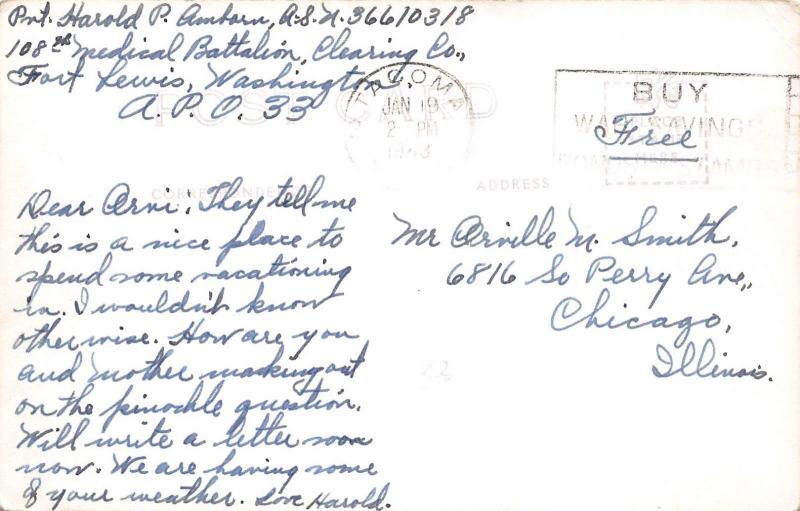 Pvt. Harold P. Amborn, A.S.N. 36610318
108th Medical Battalion, Clearing Co.,
Fort Lewis, Washington,
A.P.O. 33
POST CARD
TACOMA
JAN 19
2 PM
1943
BUY
WAR SAVINGS
BONDS STAMPS
Free
HERE
CORRESPONDENCE
ADDRESS
Dear Arvi; They tell me
this is a nice place to
spend some vacationing
in. I wouldn't know
otherwise. How are you
and Mother making out
on the pinockle question.
Will write a letter soon
now. We are having some
of your weather. Love Harold.
Mr Arville M. Smith,
6816 So Perry Ave.,
Chicago,
Illinois.